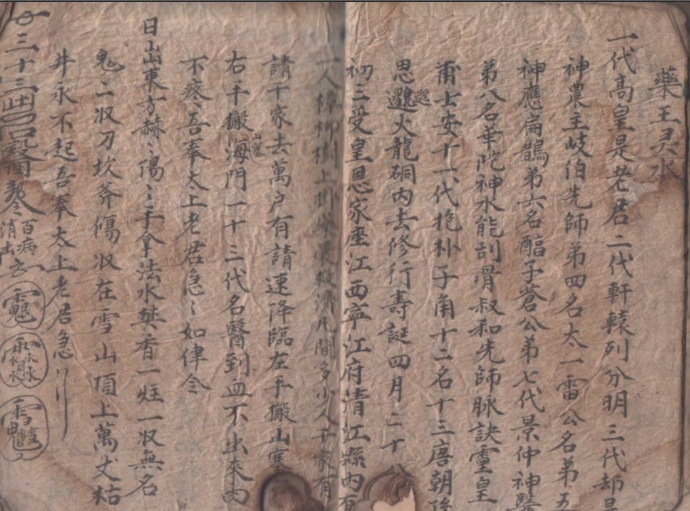 藥王灵水
一代高皇是老君二代軒轅列分明三代却是
神農主岐伯先師弟四名太一雷公名弟五
神應扁鵲弟六名醖子蒼公弟七代景仲神醫
弟八名華陀神水能刮骨叔和先師脉訣靈皇
甫士安十一代抱朴子角十二名十三唐朝孫
思邈火龍硐内去修行壽誕四月二十八
初三受皇恩家座江西寧江府清江縣内
一人樟柳樹上 救濟凡間多少人千家有
請千家去萬户有請速降臨左手搬山寒
右手搬海門一十三代名醫到血不出來内
不疼吾奉太上老君急〻如律令
日出東方赫〻陽〻手拿法水焚香一炷一収無名
鬼二収刀坎斧傷収在雪山頂上萬丈枯
井永不起吾奉太上老君急
一三十三 百病消出